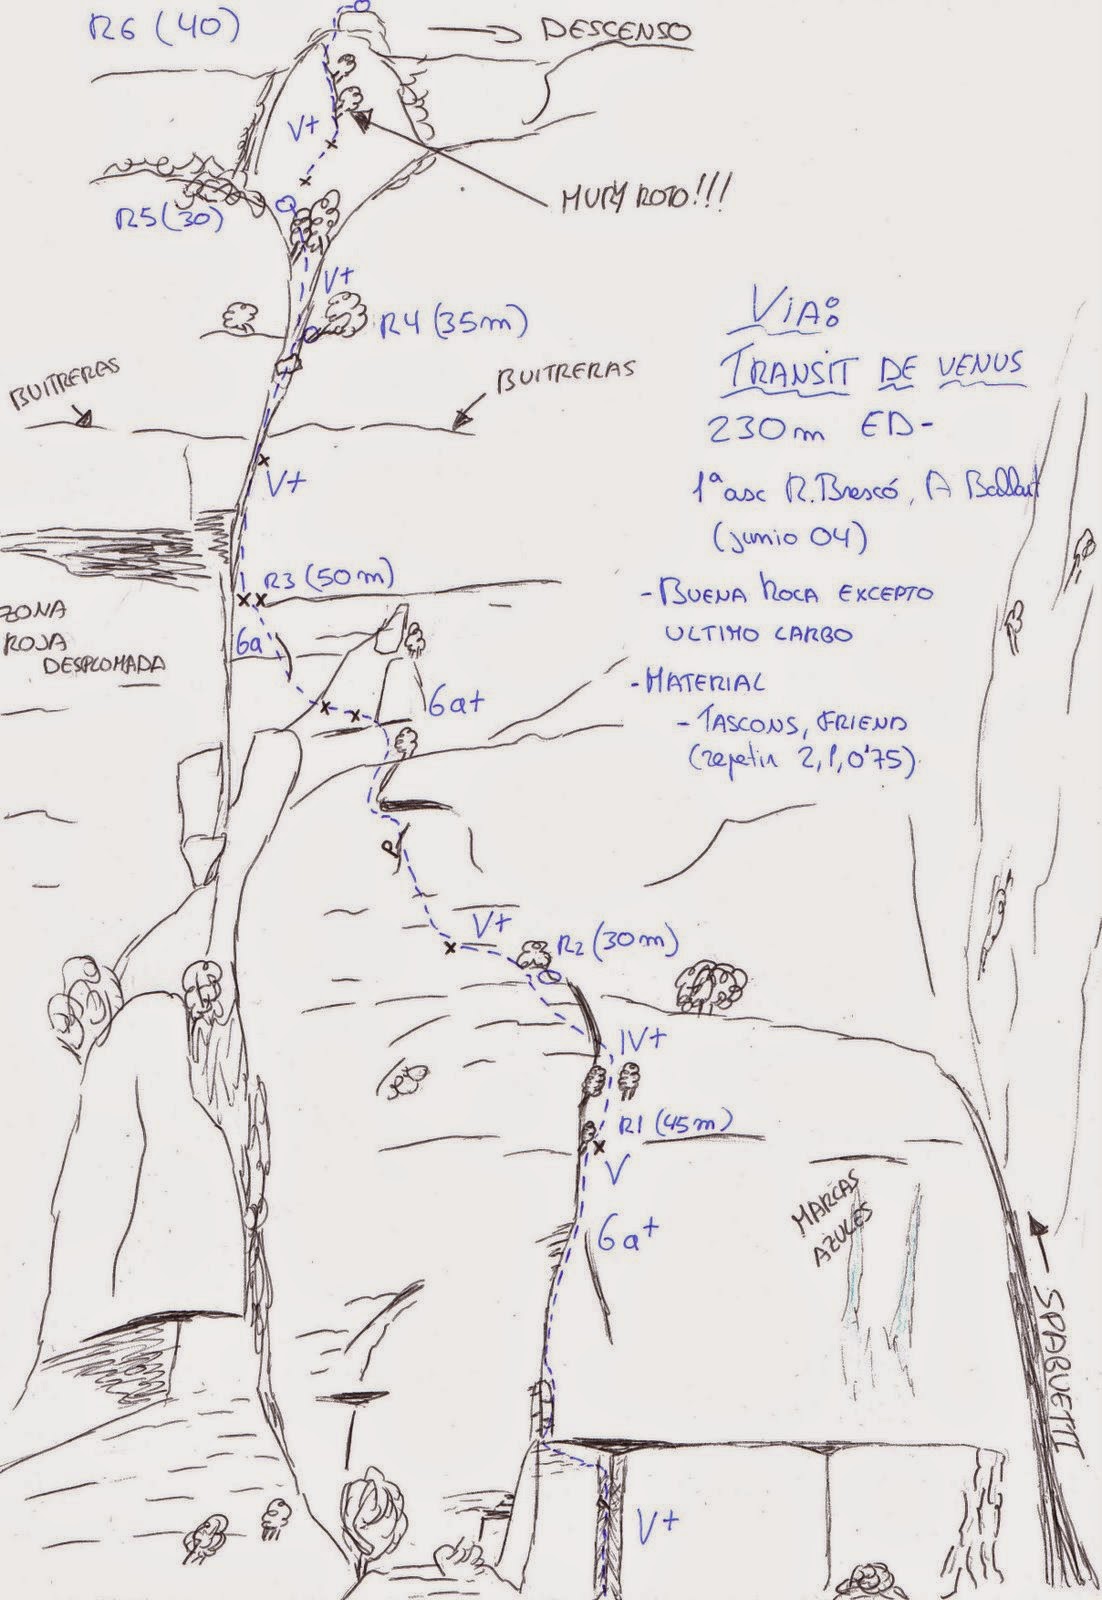 R6 (40)
DESCENSO
V+
MUY ROTO!!!
R5 (30)
V+
R4 (35m)
BUITRERAS
BUITRERAS
VIA:
TRANSIT DE VENUS
230m ED-
1ª asc R. Brescó, A Ballart
(junio 04)
- BUENA ROCA EXCEPTO
ULTIMO LARGO
- MATERIAL
- TASCONS, FRIEND
(repetir 2, 1, 0'75)
V+
R3 (50m)
ZONA
ROJA
DESPLOMADA
6a
6a+
P
V+
R2 (30m)
IV+
R1 (45m)
V
6a+
MARCAS
AZULES
SPAGUETTI
V+